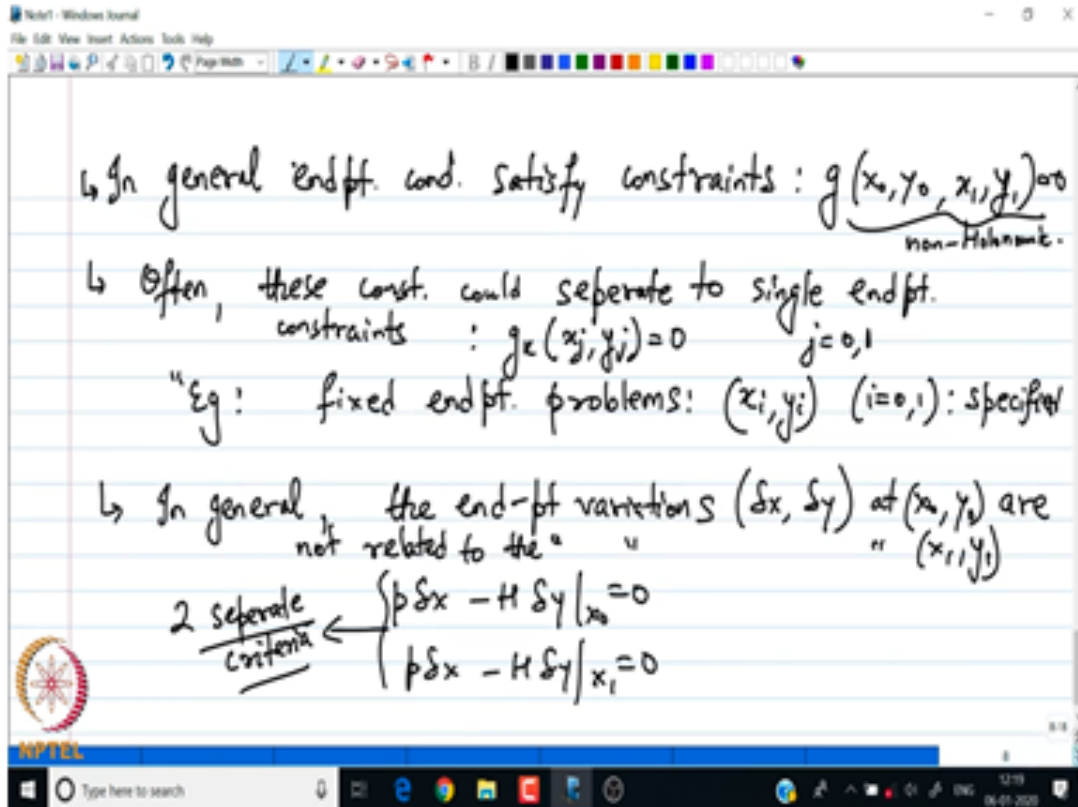 Note1 - Windows Journal
File Edit View Insert Actions Tools Help
Page Width
B I
↳ In general endpt. cond. satisfy constraints : g(x₀, y₀, x₁, y₁)=0
non-Holonomic.
↳ Often, these const. could seperate to single endpt.
constraints : gₖ(xⱼ, yⱼ)=0 j=0,1
"Eg: fixed endpt. problems: (xᵢ, yᵢ) (i=0,1): specified
↳ In general, the end-pt variations (δx, δy) at (x₀, y₀) are
not related to the " " " (x₁, y₁)
2 seperate criteria ← { pδx - Hδy|ₓ₀=0
pδx - Hδy|ₓ₁=0
NPTEL
8/8
8
Type here to search
ENG
12:19
06-01-2020